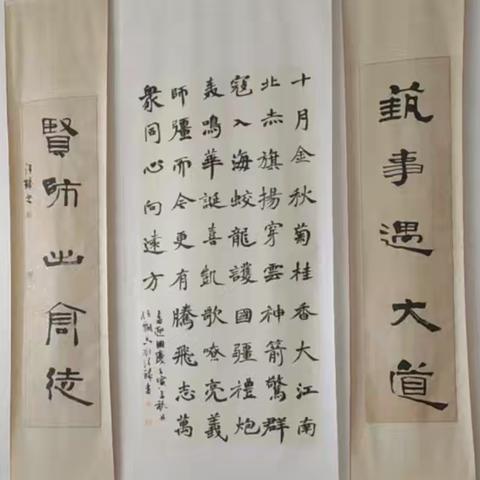 蓺事遇大道
十月金秋菊桂香大江南
北赤旗揚穿雲神箭驚群
寇入海蛟龍護國疆禮炮
轟鳴華誕喜凱歌嘹亮義
師疆而今更有騰飛志萬
衆同心向遠方
喜迎國慶壬寅
賢師出高徒